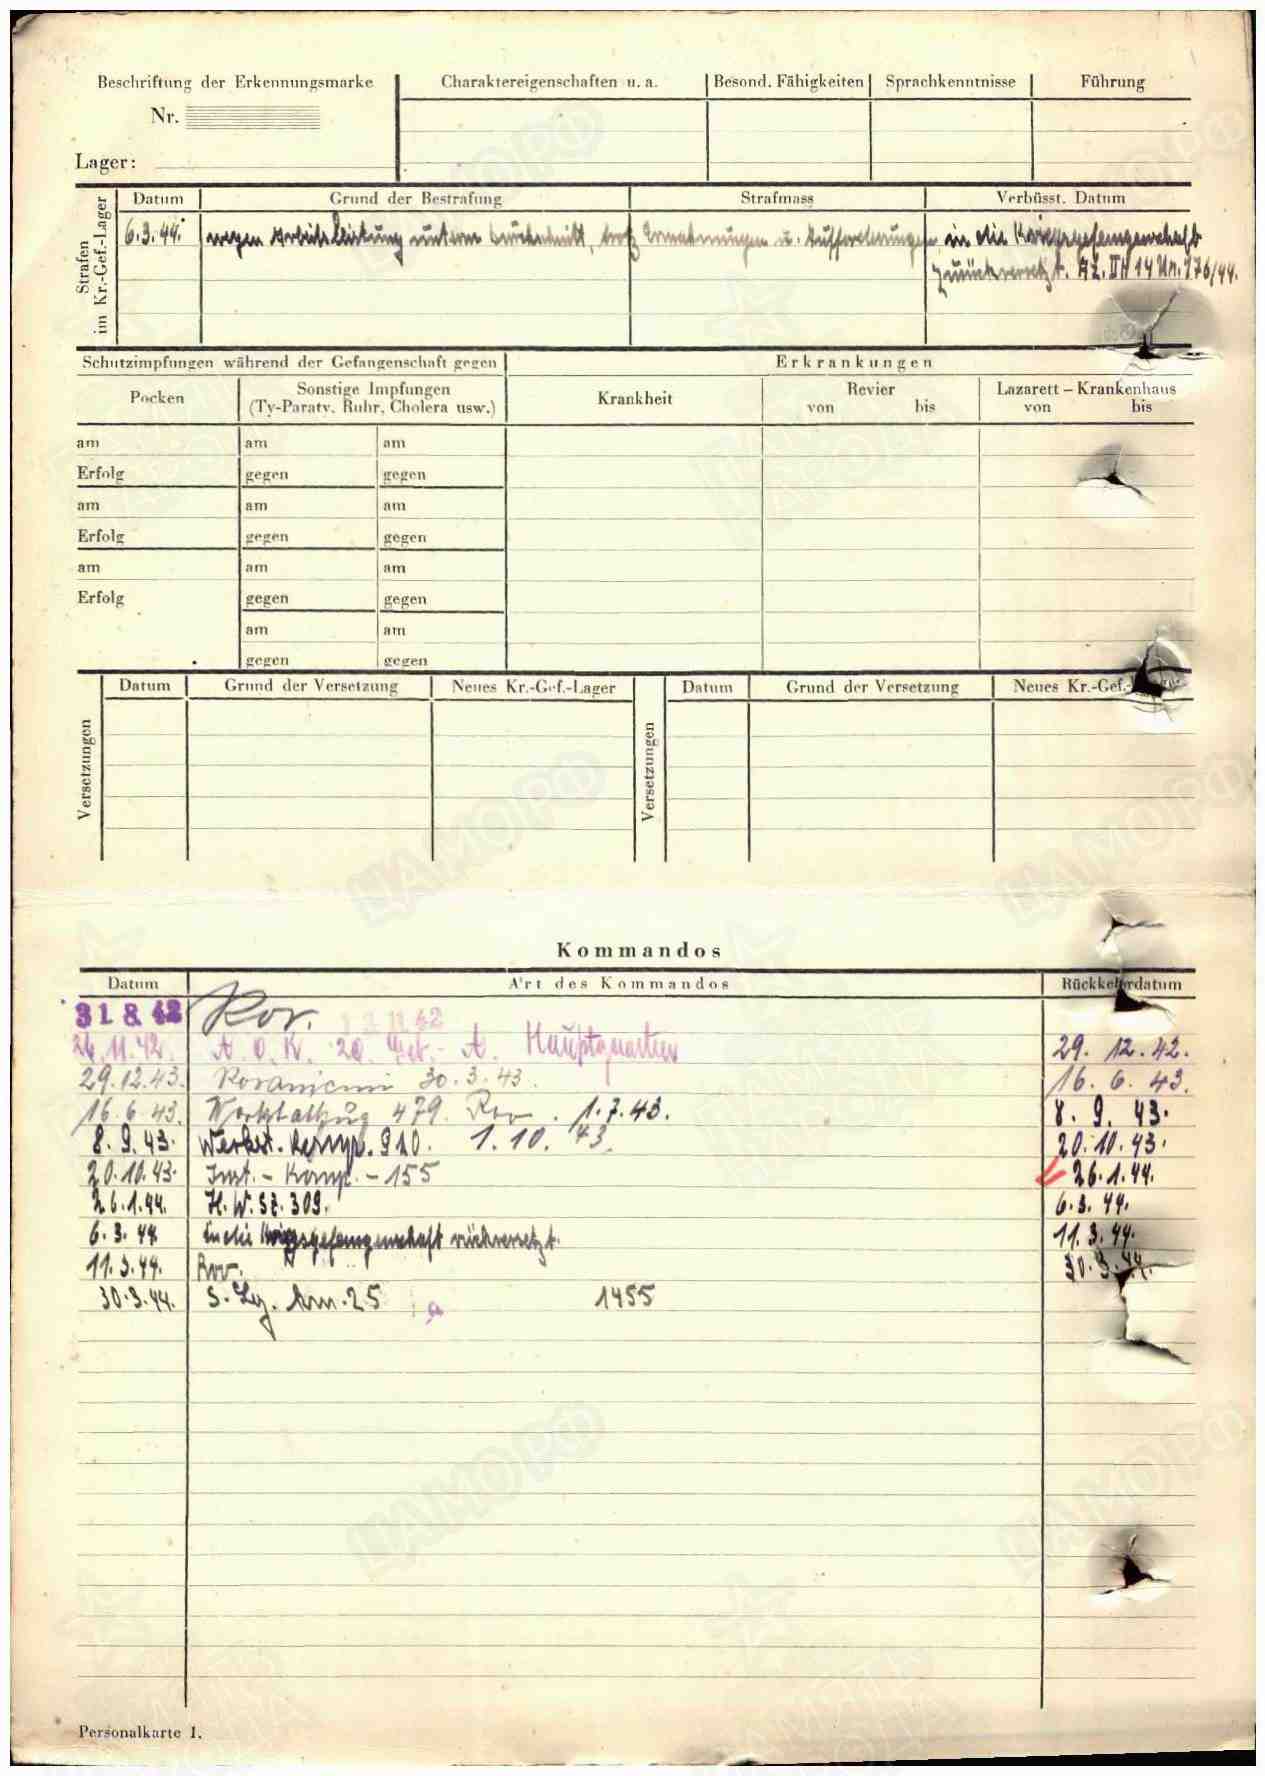 Beschriftung der Erkennungsmarke
Nr.
Lager:
Charaktereigenschaften u. a.
Besond. Fähigkeiten
Sprachkenntnisse
Führung
Strafen im Kr.-Gef.-Lager
Datum
Grund der Bestrafung
Strafmass
Verbüsst. Datum
6.3.44. wegen Arbeitsleistung unterm Durchschnitt, trotz Ermahnungen u. Aufforderungen in die Kriegsgefangenschaft
zurückversetzt. Az. II 14 Nr. 176/44.
Schutzimpfungen während der Gefangenschaft gegen
Erkrankungen
Pocken
Sonstige Impfungen
(Ty-Paraty. Ruhr, Cholera usw.)
Krankheit
Revier
von bis
Lazarett – Krankenhaus
von bis
am am am
Erfolg gegen gegen
am am am
Erfolg gegen gegen
am am am
Erfolg gegen gegen
am am
gegen gegen
Versetzungen
Datum
Grund der Versetzung
Neues Kr.-Gef.-Lager
Versetzungen
Datum
Grund der Versetzung
Neues Kr.-Gef.-
Kommandos
Datum
Art des Kommandos
Rückkehrdatum
31 8 42 Rov. 12 11 42
26.11.42. A.O.K. 20. Geb.-A. Hauptquartier 29. 12. 42.
29.12.43. Rovaniemi 30.3.43. 16. 6. 43.
16.6.43. Werkstattzug 479. Rov. 1.7.43. 8. 9. 43.
8. 9. 43. Werkst.-Komp. 920. 1.10. 43. 20.10.43.
20.10.43. Inst.-Komp.-155 26.1.44.
26.1.44. H.W.Sz. 309. 6.3.44.
6.3.44 In die Kriegsgefangenschaft rückversetzt. 11.3.44.
11.3.44. Rov. 30.3.44.
30.3.44. S. Lg. Nr. 25 1455
Personalkarte 1.
ЦАМОРФ